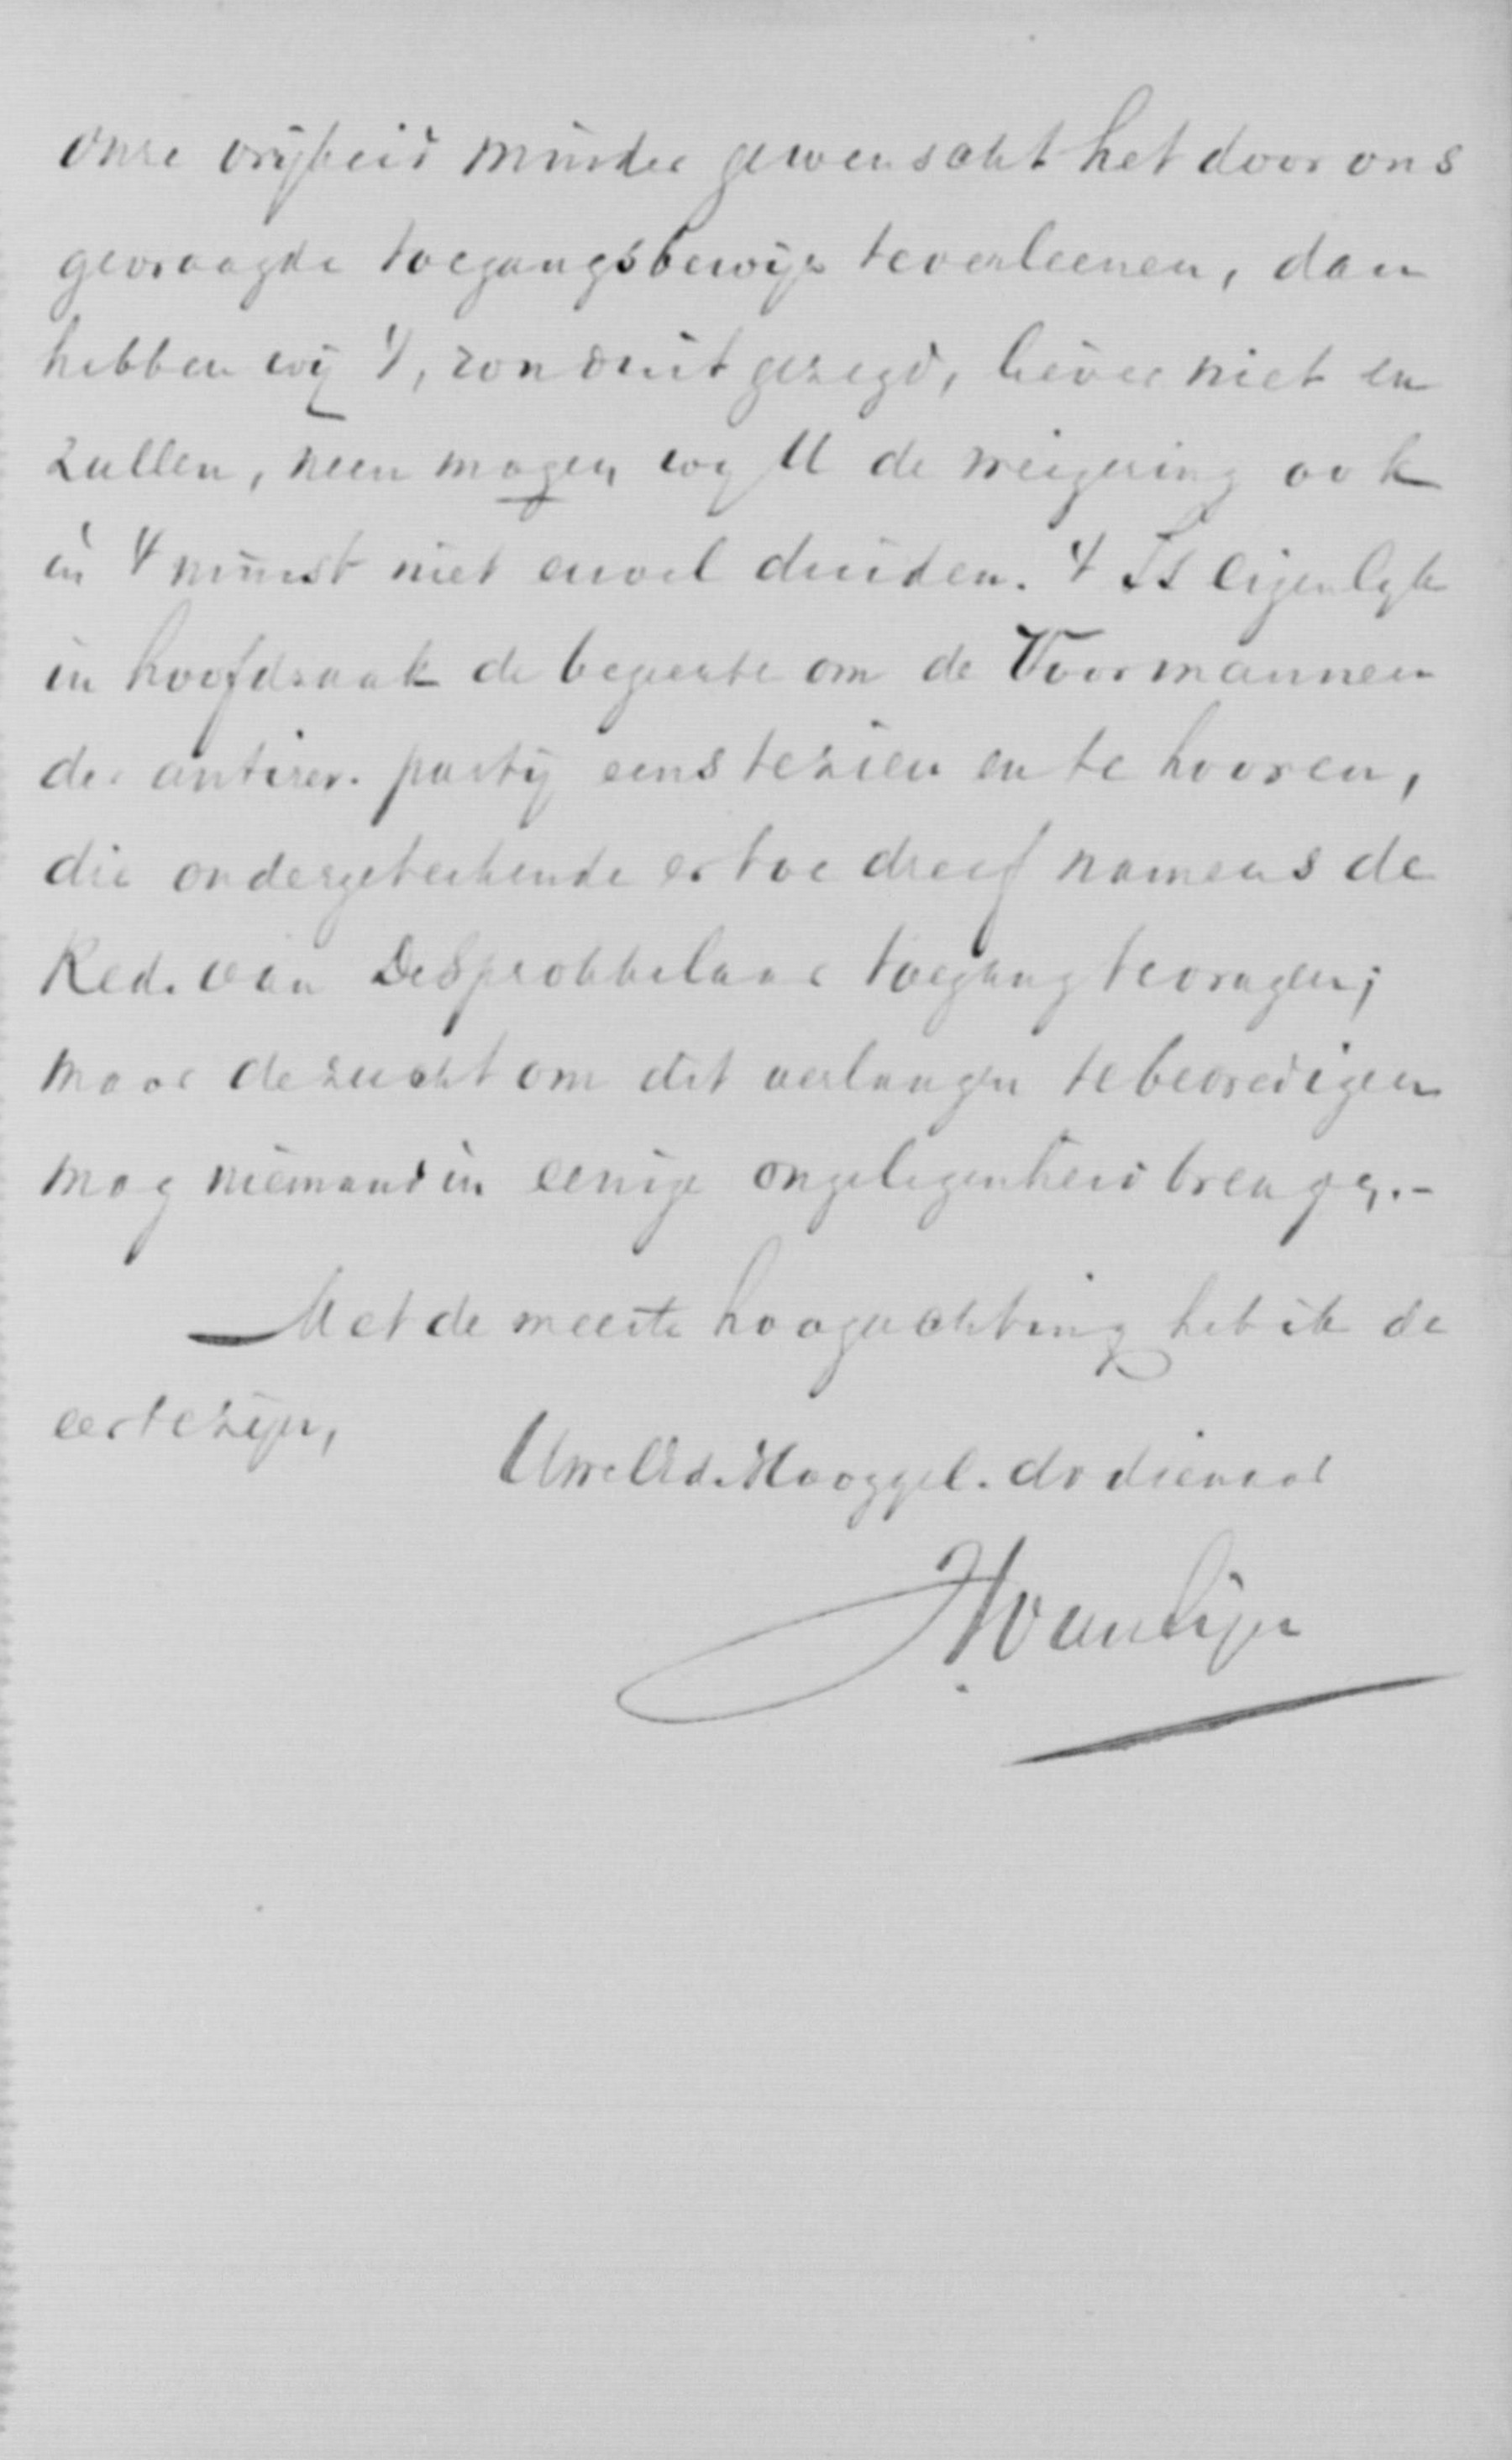 onze vrijheid minder gewenscht het door ons
gevraagde toegangsbewijs te verleenen, dan
hebben wij 't, ronduit gezegd, liever niet en
zullen, neen mogen wij U de weigering ook
in 't minst niet euvel duiden. 't Is eigenlijk
in hoofdzaak de begeerte om de Voormannen
der antirev. partij eens te zien en te hooren,
die ondergeteekende er toe dreef namens de
Red. van De Sprokkelaar toegang te vragen;
maar de zucht om dit verlangen te bevredigen
mag niemand in eenige ongelegenheid brengen.-
Met de meeste hoogachting heb ik de
eer te zijn,
Uw WelEd. Hooggel. dv dienaar